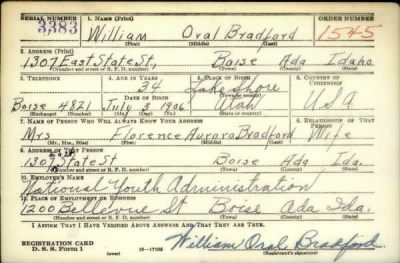 SERIAL NUMBER 1. NAME (Print) ORDER NUMBER
3383 William Oral Bradford 1545
(First) (Middle) (Last)
2. ADDRESS (Print)
1307 East State St, Boise Ada Idaho
(Number and street or R. F. D. number) (Town) (County) (State)
3. TELEPHONE 4. AGE IN YEARS 5. PLACE OF BIRTH 6. COUNTRY OF CITIZENSHIP
34 Lake Shore
DATE OF BIRTH
Boise 4821 July 3 1906 Utah USA
(Exchange) (Number) (Mo.) (Day) (Yr.) (State or country)
7. NAME OF PERSON WHO WILL ALWAYS KNOW YOUR ADDRESS 8. RELATIONSHIP OF THAT PERSON
Mrs Florence Aurora Bradford Wife
(Mr., Mrs., Miss) (First) (Middle) (Last)
9. ADDRESS OF THAT PERSON
East
1307 State St Boise Ada Ida.
(Number and street or R. F. D. number) (Town) (County) (State)
10. EMPLOYER'S NAME
National Youth Administration
11. PLACE OF EMPLOYMENT OR BUSINESS
1200 Bellevue St Boise Ada Ida.
(Number and street or R. F. D. number) (Town) (County) (State)
I AFFIRM THAT I HAVE VERIFIED ABOVE ANSWERS AND THAT THEY ARE TRUE.
REGISTRATION CARD
D. S. S. Form 1 (over) William Oral Bradford
(Registrant's signature)